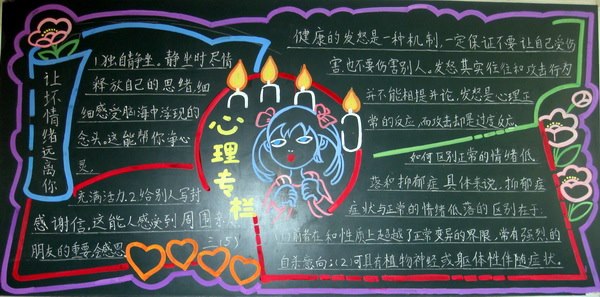 让坏情绪远离你
1.独自静坐。静坐时尽情
释放自己的思绪,细
细感受脑海中浮现的
念头,这能帮你净心
灵,
充满活力.2.给别人写封
感谢信,这能人感受到周围亲
朋友的重要,会感恩
心理专栏
健康的发怒是一种机制,一定保证不要让自己受伤
害,也不要伤害别人。发怒其实往往和攻击行为
并不能相提并论,发怒是心理正
常的反应,而攻击却是过度反应。
如何区别正常的情绪低
落和抑郁症具体来说,抑郁症
症状与正常的情绪低落的区别在于:
前者在和性质上超越了正常变异的界限,常有强烈的
自杀意向;(2)可具有植物神经或躯体性伴随症状。